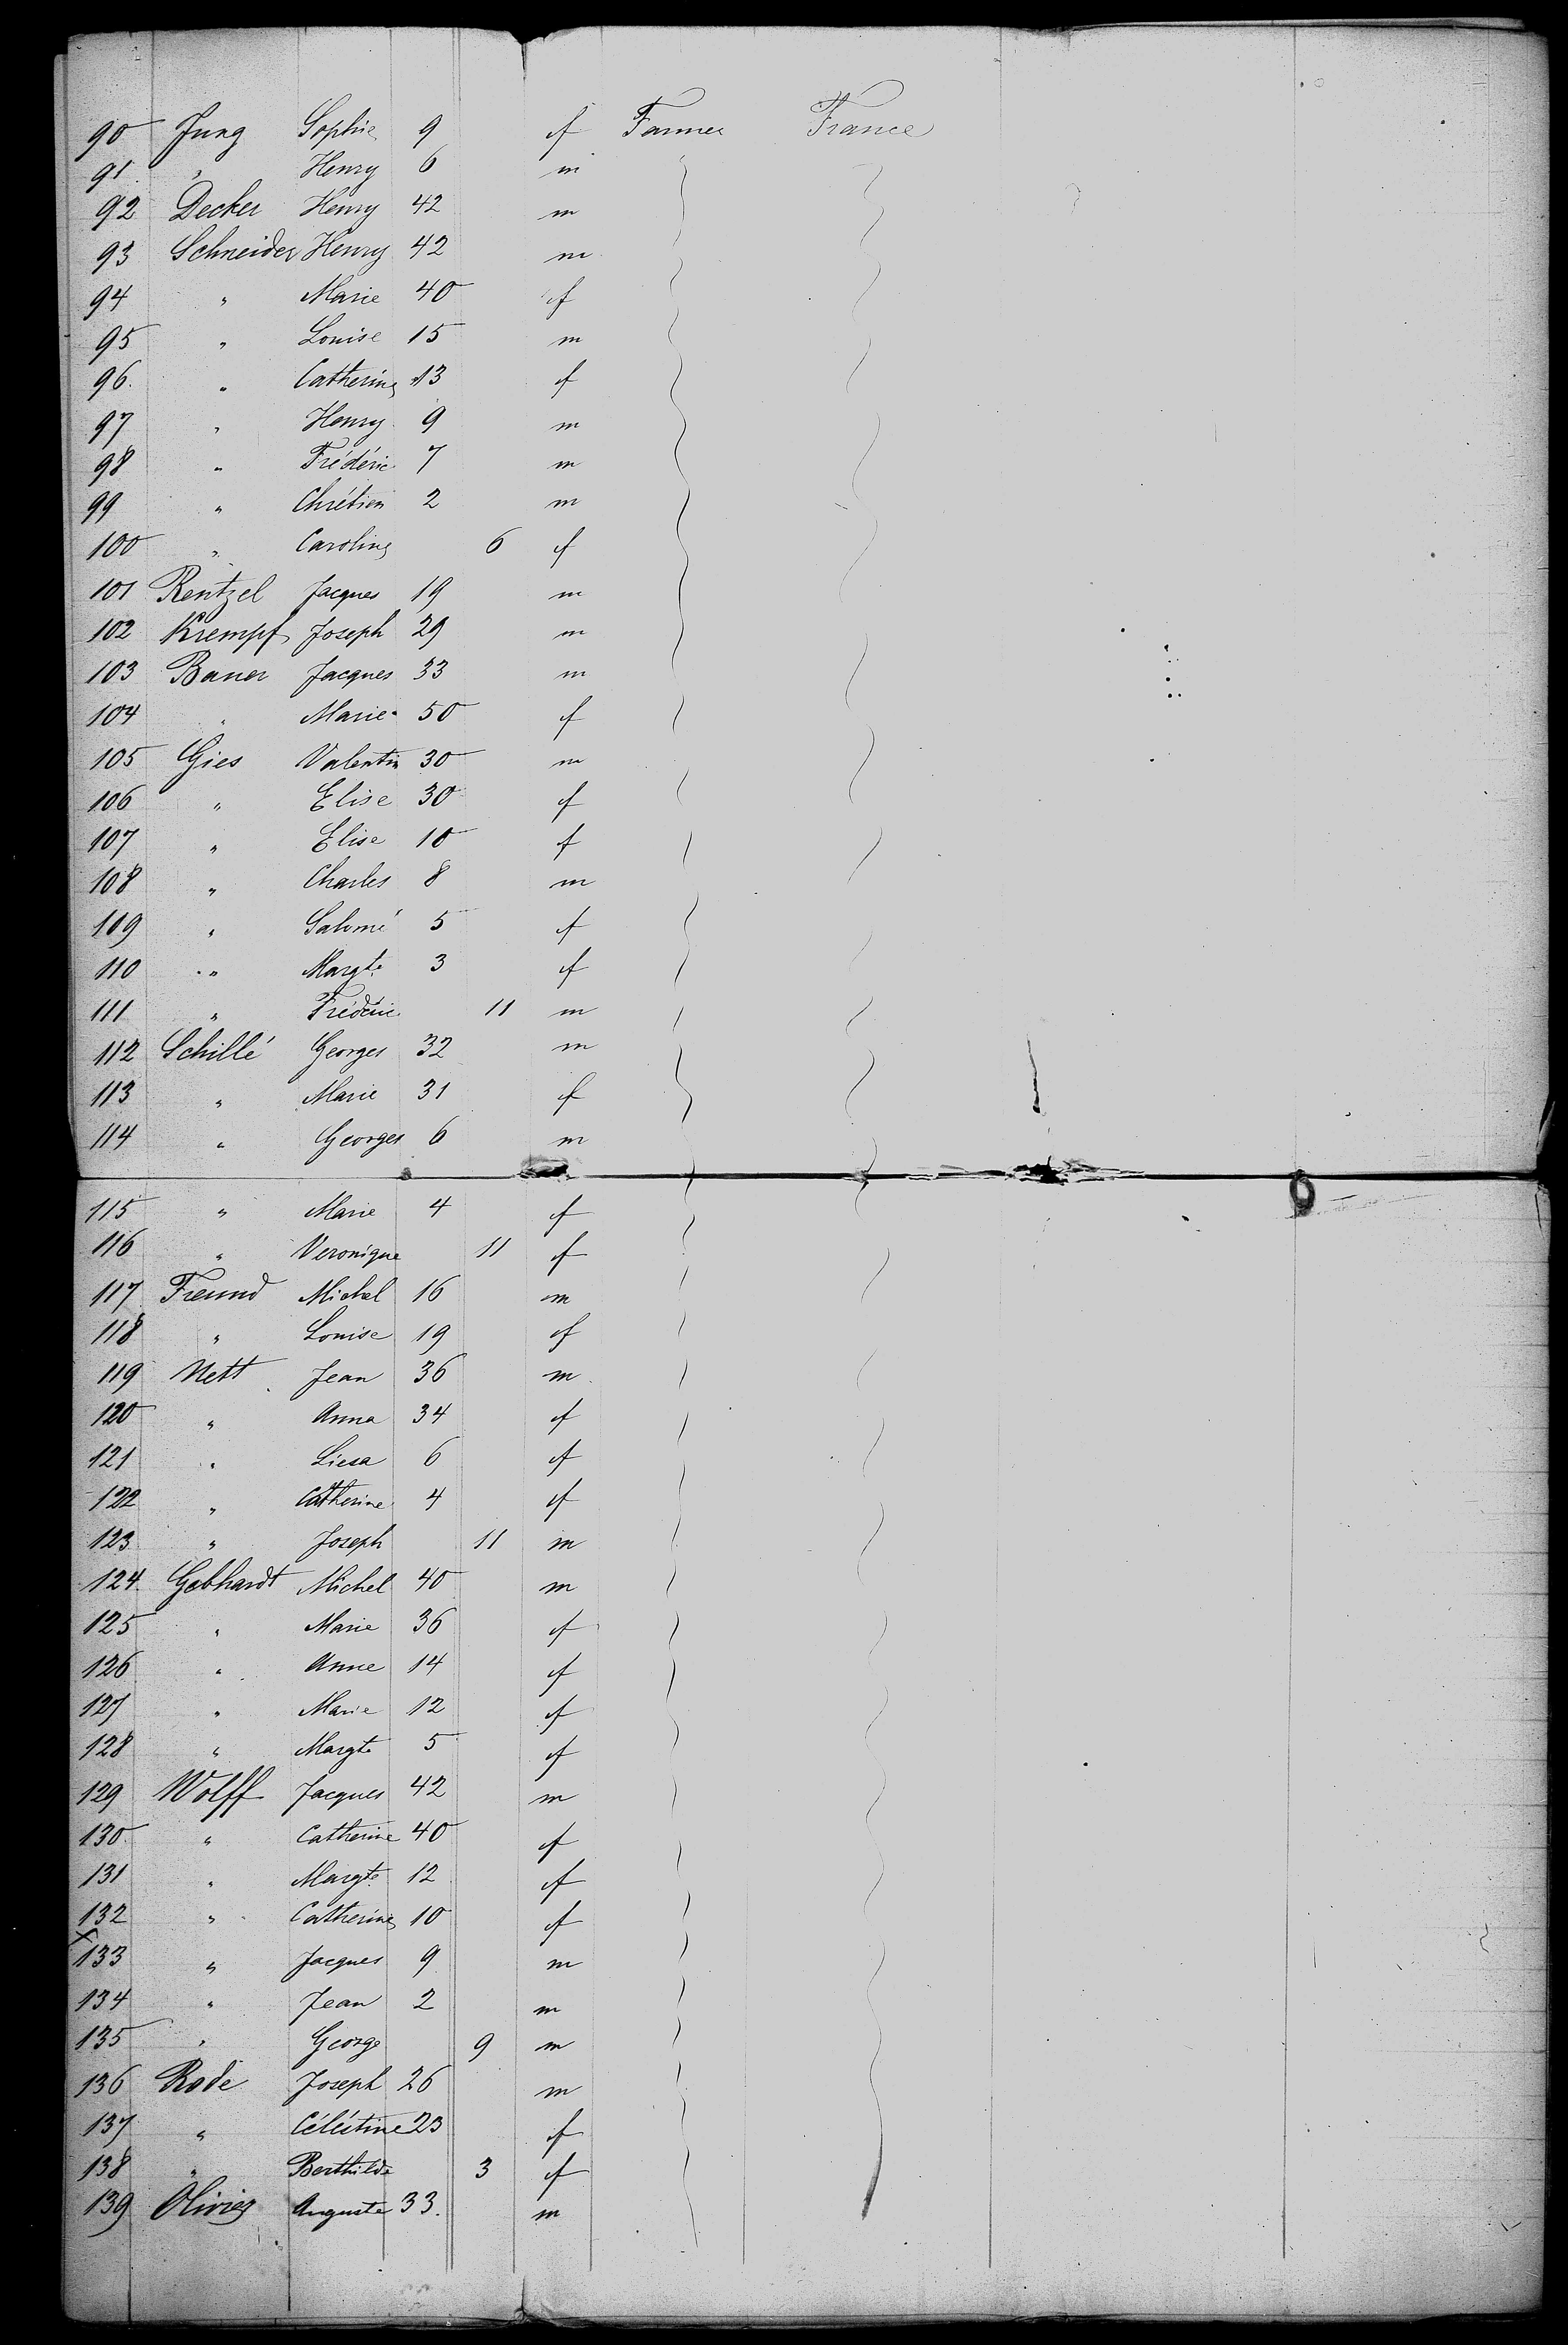 90 Jung Sophie 9 f Farmer France
91 " Henry 6 m
92 Decker Henry 42 m
93 Schneider Henry 42 m
94 " Marie 40 f
95 " Louise 15 m
96. " Catherine 13 f
97 " Henry 9 m
98 " Frédéric 7 m
99 " Chrétien 2 m
100 " Caroline 6 f
101 Rentzel Jacques 19 m
102 Krempf Joseph 29 m
103 Bauer Jacques 33 m
104 " Marie 50 f
105 Gies Valentin 30 m
106 " Elise 30 f
107 " Elise 10 f
108 " Charles 8 m
109 " Salomé 5 f
110 " Margte 3 f
111 " Fréderic 11 m
112 Schillé Georges 32 m
113 " Marie 31 f
114 " Georges 6 m
115 " Marie 4 f
116 " Veronique 11 f
117 Freund Michel 16 m
118 " Louise 19 f
119 Nett Jean 36 m
120 " Anna 34 f
121 " Liesa 6 f
122 " Catherine 4 f
123 " Joseph 11 m
124 Gebhardt Michel 40 m
125 " Marie 36 f
126 " Anne 14 f
127 " Marie 12 f
128 " Margte 5 f
129 Wolff Jacques 42 m
130 " Catherine 40 f
131 " Margte 12 f
132 " Catherine 10 f
x 133 " Jacques 9 m
134 " Jean 2 m
135 " George 9 m
136 Rode Joseph 26 m
137 " Céléstine 23 f
138 " Berthilde 3 f
139 Olivier Auguste 33. m